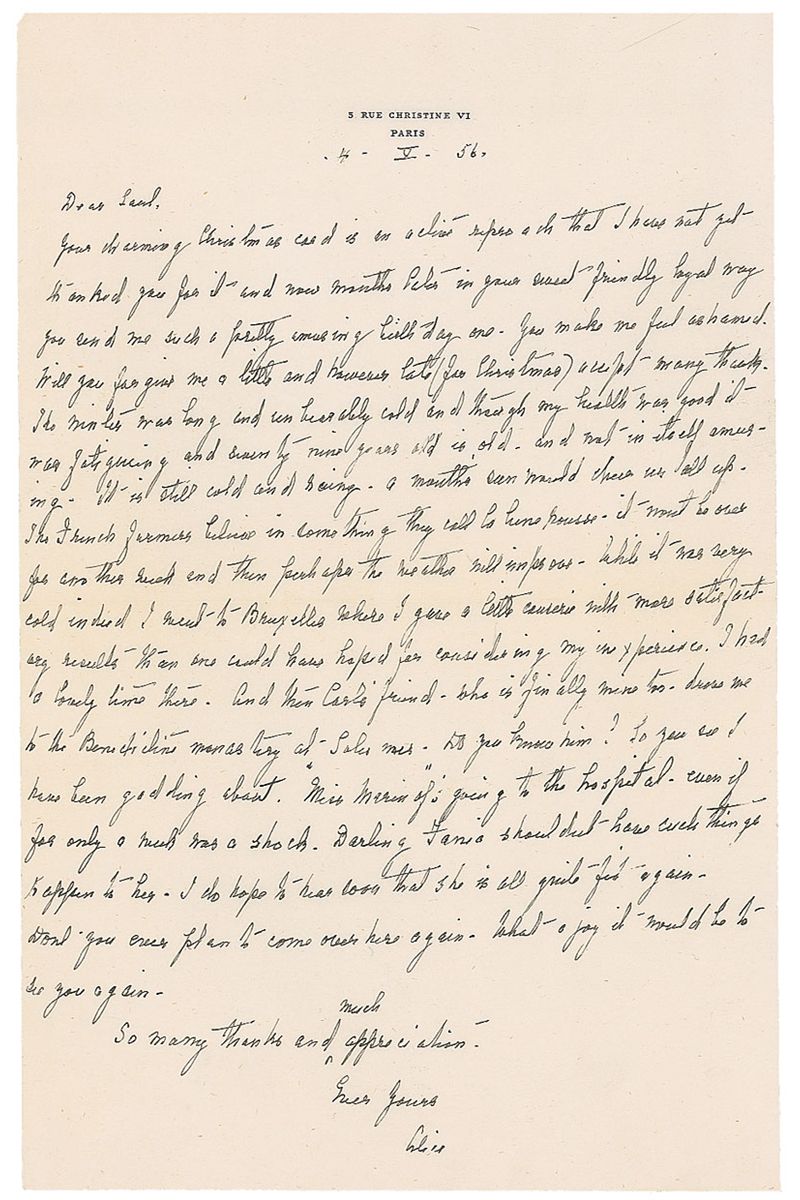 5 RUE CHRISTINE VI
PARIS
. 4 - V - 56.
Dear Saul,
Your charming Christmas card is an active reproach that I have not yet
thanked you for it - and now months later in your sweet friendly loyal way
you send me such a pretty amusing birthday one - You make me feel ashamed.
Will you forgive me a little and however late (for Christmas) accept many thanks.
The winter was long and unbearably cold and though my health was good it
was fatiguing and seventy nine years old is old - and not in itself amus-
ing - It is still cold and raining - a month's sun would cheer us all up.
The French farmers believe in something they call la lune rousse - it must be over
for another week and then perhaps the weather will improve - While it was very
cold indeed I went to Bruxelles where I gave a little causerie with more satisfact-
ory results than one could have hoped for considering my inexperience. I had
a lovely time there. And then Carl's friend - who is finally mine too - drove me
to the Benedictine monastery at Solesmes - Do you know him ? So you see I
have been gadding about. "Miss Marinof"'s going to the hospital - even if
for only a week was a shock. Darling Fania shouldnt have such things
happen to her - I do hope to hear soon that she is all quite fit again -
Dont you ever plan to come over here again - What a joy it would be to
see you again -
much
So many thanks and ^ appreciation -
Ever yours
Alice